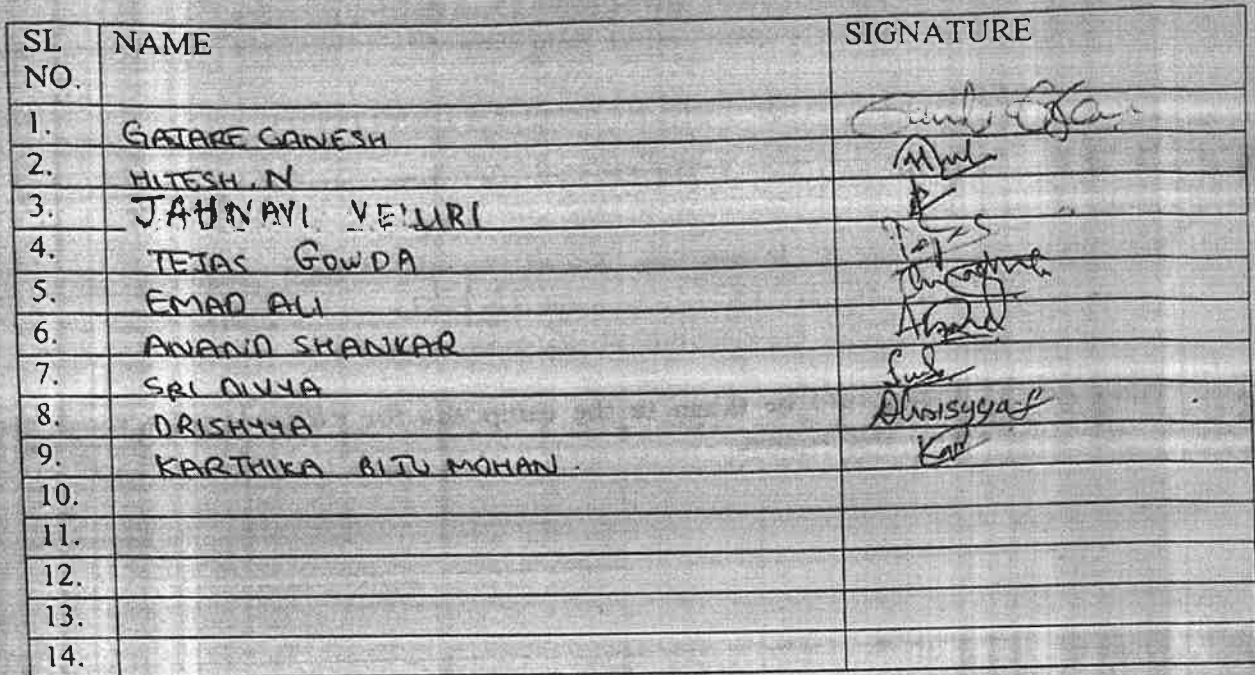 SL NO. NAME SIGNATURE
1. GAJARE GANESH
2. HITESH. N
3. JAHNAVI VELURI
4. TEJAS GOWDA Tejas
5. EMAD ALI
6. ANAND SHANKAR Anand
7. SRI DIVYA
8. DRISHYYA
9. KARTHIKA BIJU MOHAN.
10.
11.
12.
13.
14.